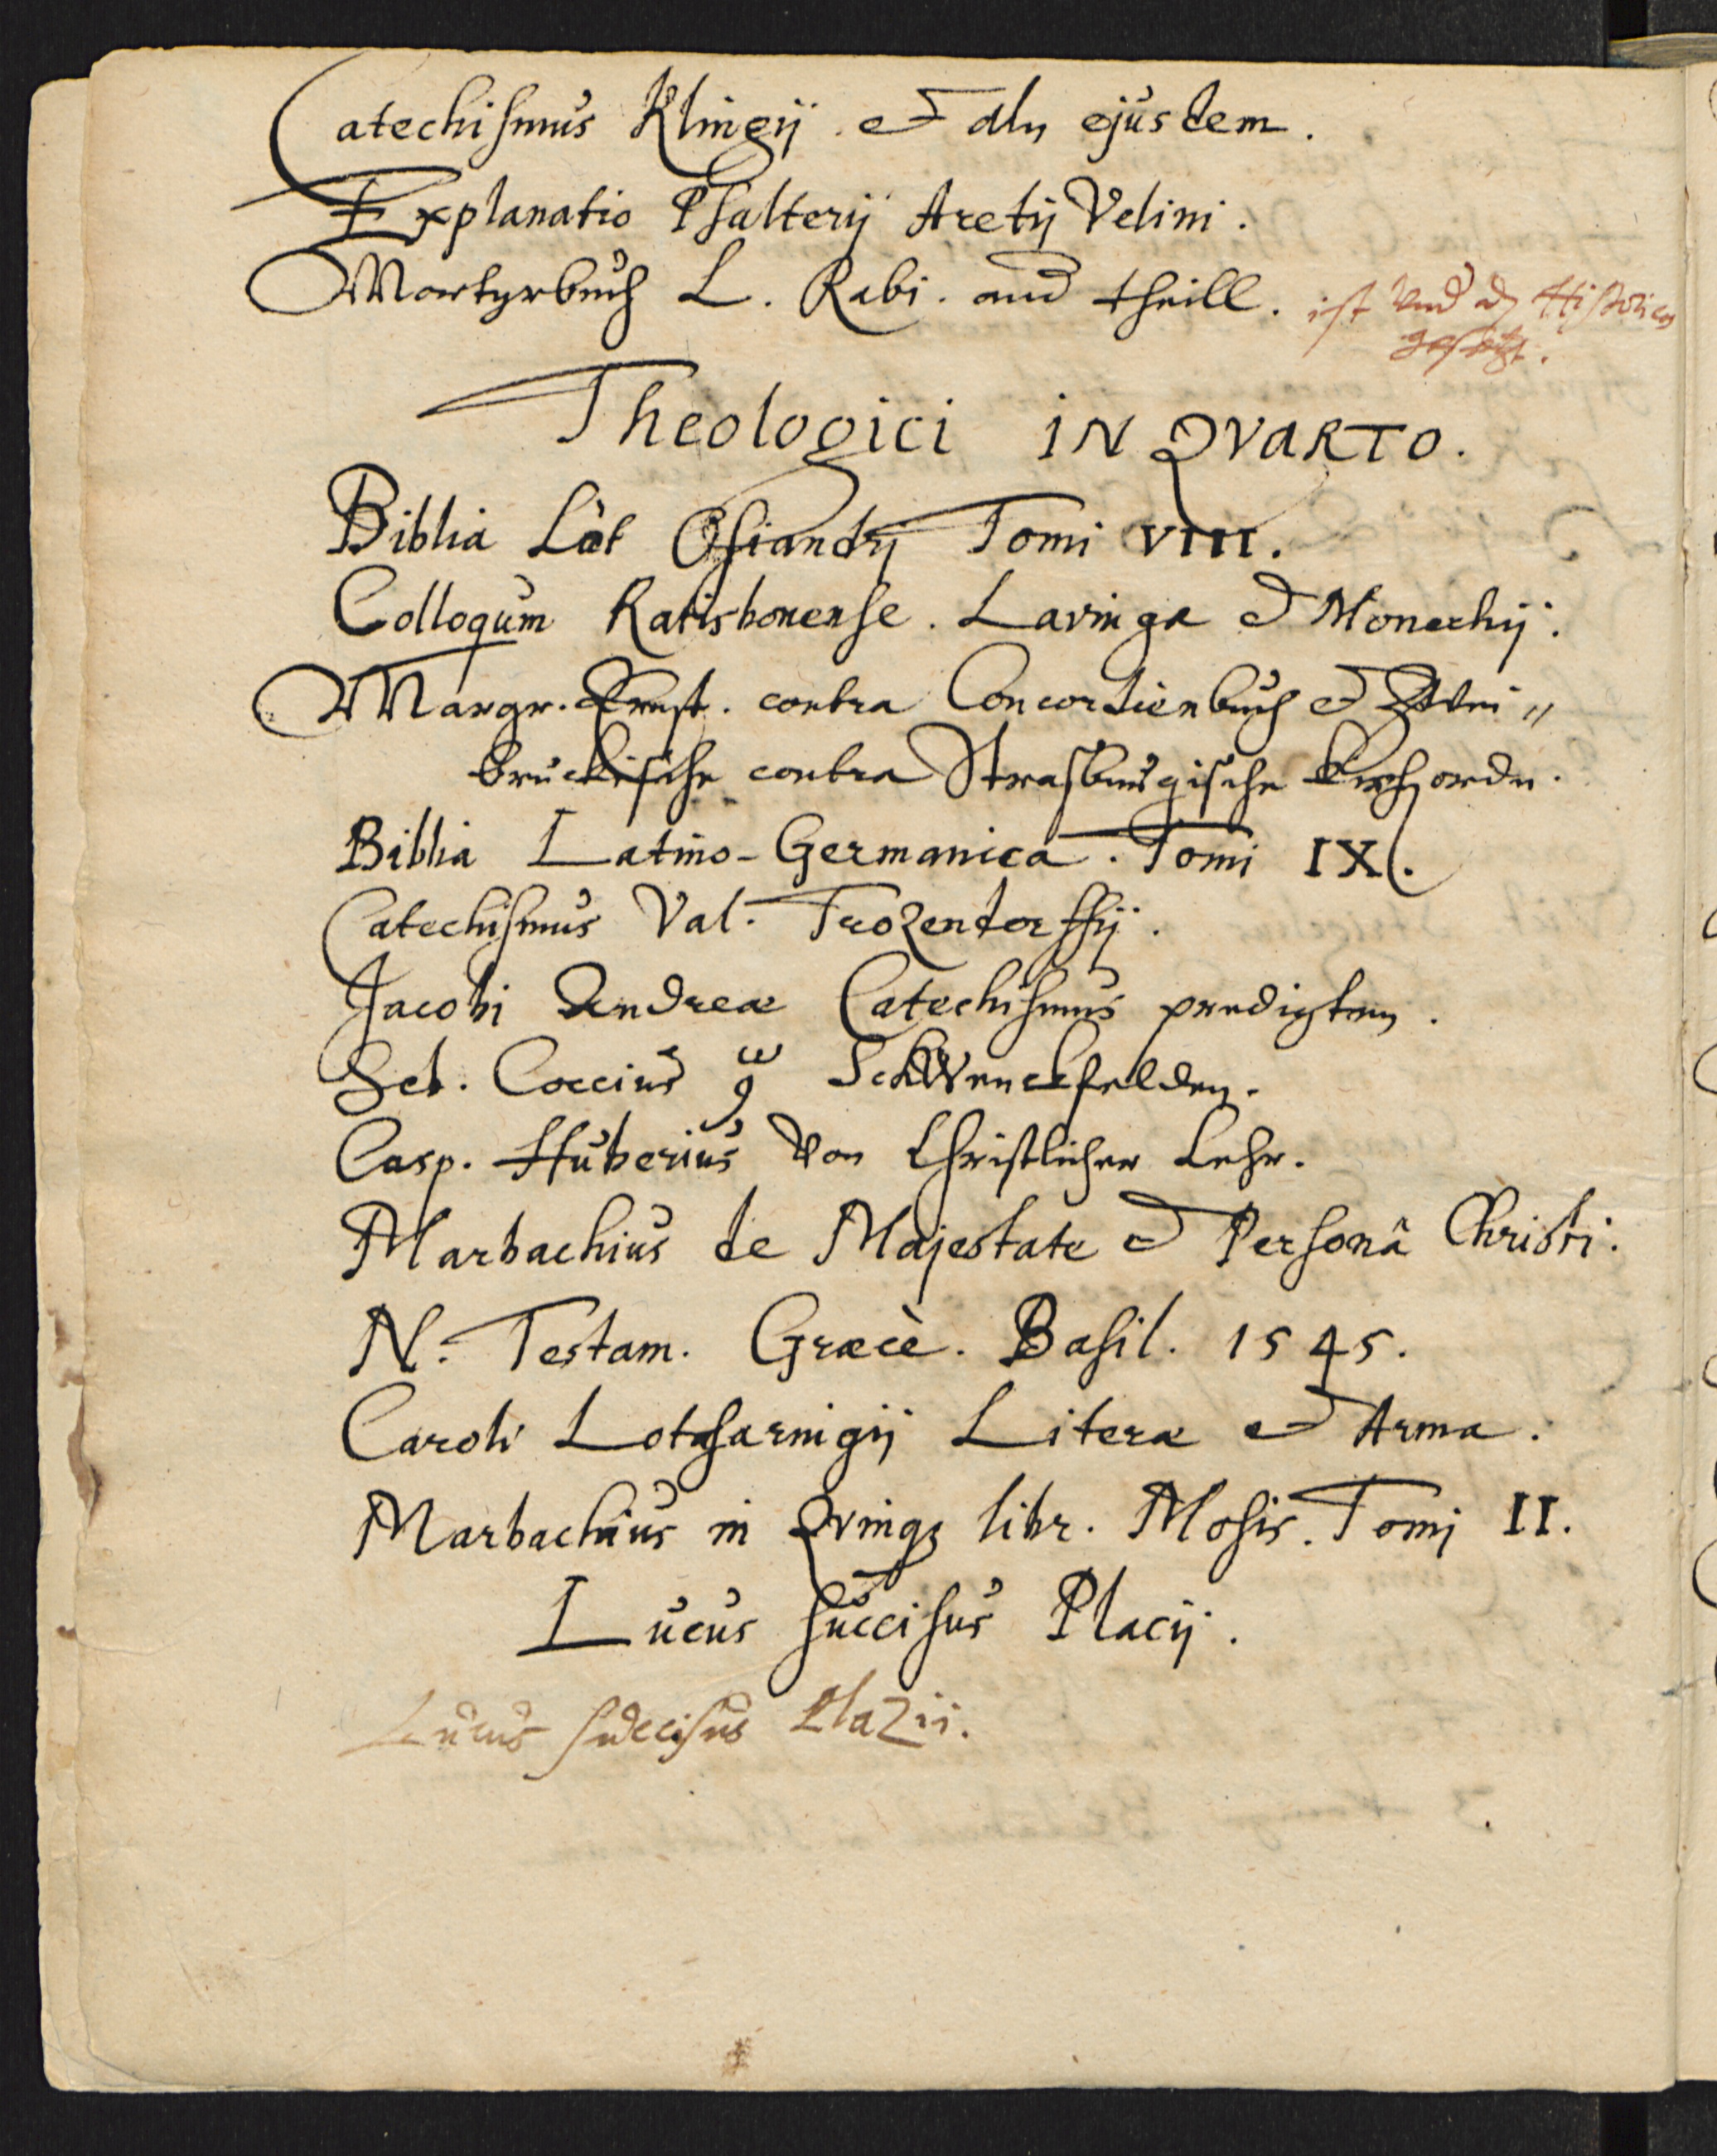 Catechismus Klingij et alij ejusdem.
Explanatio Psalterij Aretij Velini.
Martyrbuch L. Rabi. theill. ist Historicos
gesetzt.
Theologici IN QVARTO.
Biblia Lat Osiandrj Tomi VIII.
Colloqum Ratisbonense. Lavinga et Monachij.
Margr. Ernst. contra Concordienbuch et Zwei"
bruckische contra Strasburgische Kirchordn.
Biblia Latino-Germanica. Tomi IX.
Catechismus Val. Trozendorffij.
Jacobi Andreæ Catechismus predigten.
Seb. Coccius Schwenckfelden.
Casp. Huberius von Christlicher Lehr.
Marbachius de Majestate et Personâ Christi.
N. Testam. Græcè. Basil. 1545.
Caroli Lotharingij Literæ et Arma.
Marbachius in Qvinqz libr. Mosis. Tomj II.
Lucus succisus Placij.
Lucus succisus Plazii.